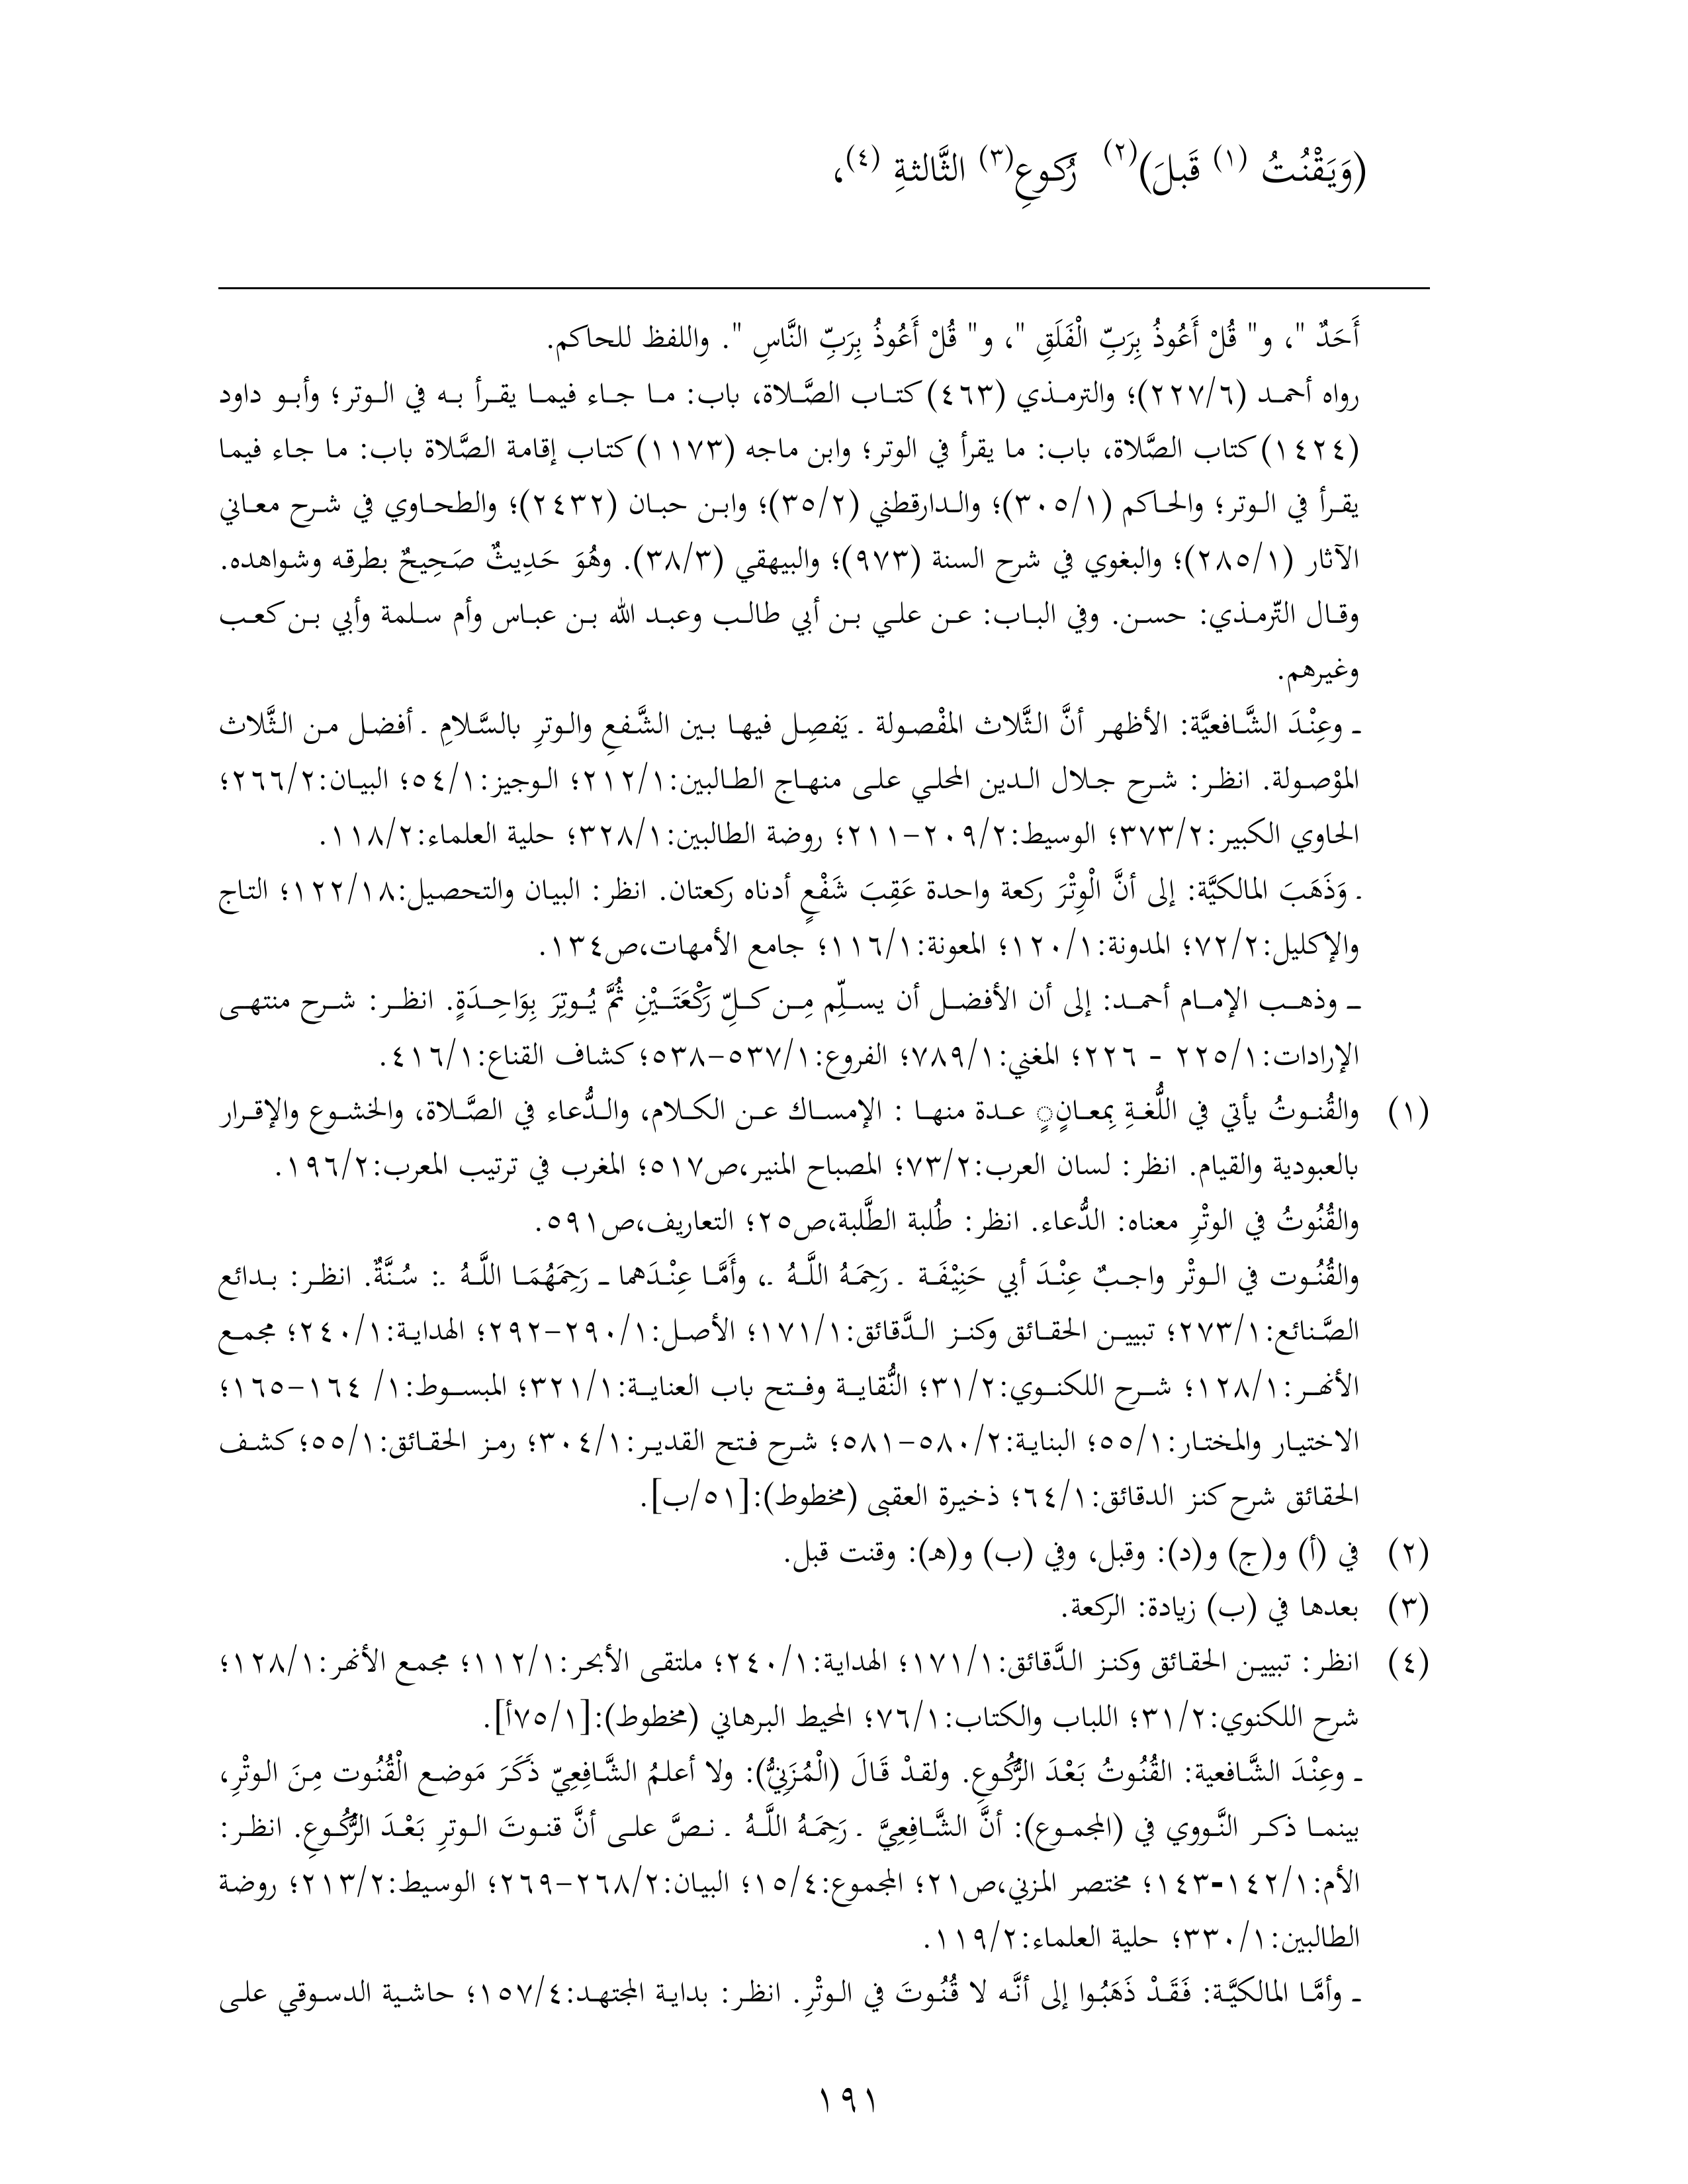 (وَيَقْنُتُ (١) قَبلَ)(٢) رُكوعِ(٣) الثَّالثةِ (٤)،
أَحَدٌ "، و" قُلْ أَعُوذُ بِرَبِّ الْفَلَقِ "، و" قُلْ أَعُوذُ بِرَبِّ النَّاسِ ". واللفظ للحاكم.
رواه أحمد (٢٢٧/٦)؛ والترمذي (٤٦٣) كتاب الصَّلاة، باب: ما جاء فيما يقرأ به في الوتر؛ وأبو داود
(١٤٢٤) كتاب الصَّلاة، باب: ما يقرأ في الوتر؛ وابن ماجه (١١٧٣) كتاب إقامة الصَّلاة باب: ما جاء فيما
يقرأ في الوتر؛ والحاكم (٣٠٥/١)؛ والدارقطني (٣٥/٢)؛ وابن حبان (٢٤٣٢)؛ والطحاوي في شرح معاني
الآثار (٢٨٥/١)؛ والبغوي في شرح السنة (٩٧٣)؛ والبيهقي (٣٨/٣). وهُوَ حَدِيثٌ صَحِيحٌ بطرقه وشواهده.
وقال التّرمذي: حسن. وفي الباب: عن علي بن أبي طالب وعبد الله بن عباس وأم سلمة وأبي بن كعب
وغيرهم.
ـ وعِنْدَ الشَّافعيَّة: الأظهر أنَّ الثَّلاث المفْصولة ـ يَفصِل فيها بين الشَّفعِ والوترِ بالسَّلامِ ـ أفضل من الثَّلاث
الموْصولة. انظر: شرح جلال الدين المحلي على منهاج الطالبين:٢١٢/١؛ الوجيز:٥٤/١؛ البيان:٢٦٦/٢؛
الحاوي الكبير:٣٧٣/٢؛ الوسيط:٢٠٩/٢-٢١١؛ روضة الطالبين:٣٢٨/١؛ حلية العلماء:١١٨/٢.
ـ وَذَهَبَ المالكيَّة: إلى أنَّ الْوِتْرَ ركعة واحدة عَقِبَ شَفْعٍ أدناه ركعتان. انظر: البيان والتحصيل:١٢٢/١٨؛ التاج
والإكليل:٧٢/٢؛ المدونة:١٢٠/١؛ المعونة:١١٦/١؛ جامع الأمهات،ص١٣٤.
ـ وذهب الإمام أحمد: إلى أن الأفضل أن يسلِّم مِن كلِّ رَكْعَتَيْنِ ثُمَّ يُوتِرَ بِوَاحِدَةٍ. انظر: شرح منتهى
الإرادات:٢٢٥/١ - ٢٢٦؛ المغني:٧٨٩/١؛ الفروع:٥٣٧/١-٥٣٨؛ كشاف القناع:٤١٦/١.
(١) والقُنوتُ يأتي في اللُّغةِ بِمعانٍٍ عدة منها : الإمساك عن الكلام، والدُّعاء في الصَّلاة، والخشوع والإقرار
بالعبودية والقيام. انظر: لسان العرب:٧٣/٢؛ المصباح المنير،ص٥١٧؛ المغرب في ترتيب المعرب:١٩٦/٢.
والقُنُوتُ في الوتْرِ معناه: الدُّعاء. انظر: طُلبة الطَّلبة،ص٢٥؛ التعاريف،ص٥٩١.
والقُنُوت في الوتْر واجبٌ عِنْدَ أبي حَنِيْفَة ـ رَحِمَهُ اللَّهُ ـ، وأَمَّا عِنْدَهما ـ رَحِمَهُمَا اللَّهُ ـ: سُنَّةٌ. انظر: بدائع
الصَّنائع:٢٧٣/١؛ تبيين الحقائق وكنز الدَّقائق:١٧١/١؛ الأصل:٢٩٠/١-٢٩٢؛ الهداية:٢٤٠/١؛ مجمع
الأنهر:١٢٨/١؛ شرح اللكنوي:٣١/٢؛ النُّقاية وفتح باب العناية:٣٢١/١؛ المبسوط:١/ ١٦٤-١٦٥؛
الاختيار والمختار:٥٥/١؛ البناية:٥٨٠/٢-٥٨١؛ شرح فتح القدير:٣٠٤/١؛ رمز الحقائق:٥٥/١؛ كشف
الحقائق شرح كنز الدقائق:٦٤/١؛ ذخيرة العقبى (مخطوط):[٥١/ب].
(٢) في (أ) و(ج) و(د): وقبل، وفي (ب) و(هـ): وقنت قبل.
(٣) بعدها في (ب) زيادة: الركعة.
(٤) انظر: تبيين الحقائق وكنز الدَّقائق:١٧١/١؛ الهداية:٢٤٠/١؛ ملتقى الأبحر:١١٢/١؛ مجمع الأنهر:١٢٨/١؛
شرح اللكنوي:٣١/٢؛ اللباب والكتاب:٧٦/١؛ المحيط البرهاني (مخطوط):[٧٥/١أ].
ـ وعِنْدَ الشَّافعية: القُنُوتُ بَعْدَ الرُّكُوعِ. ولقدْ قَالَ (الْمُزَنِيُّ): ولا أعلمُ الشَّافِعِيّ ذَكَرَ مَوضع الْقُنُوت مِنَ الوتْرِ،
بينما ذكر النَّووي في (المجموع): أنَّ الشَّافِعِيَّ ـ رَحِمَهُ اللَّهُ ـ نصَّ على أنَّ قنوتَ الوترِ بَعْدَ الرُّكُوعِ. انظر:
الأم:١٤٢/١-١٤٣؛ مختصر المزني،ص٢١؛ المجموع:١٥/٤؛ البيان:٢٦٨/٢-٢٦٩؛ الوسيط:٢١٣/٢؛ روضة
الطالبين:٣٣٠/١؛ حلية العلماء:١١٩/٢.
ـ وأمَّا المالكيَّة: فَقَدْ ذَهَبُوا إلى أنَّه لا قُنُوتَ في الوتْرِ. انظر: بداية المجتهد:١٥٧/٤؛ حاشية الدسوقي على
١٩١